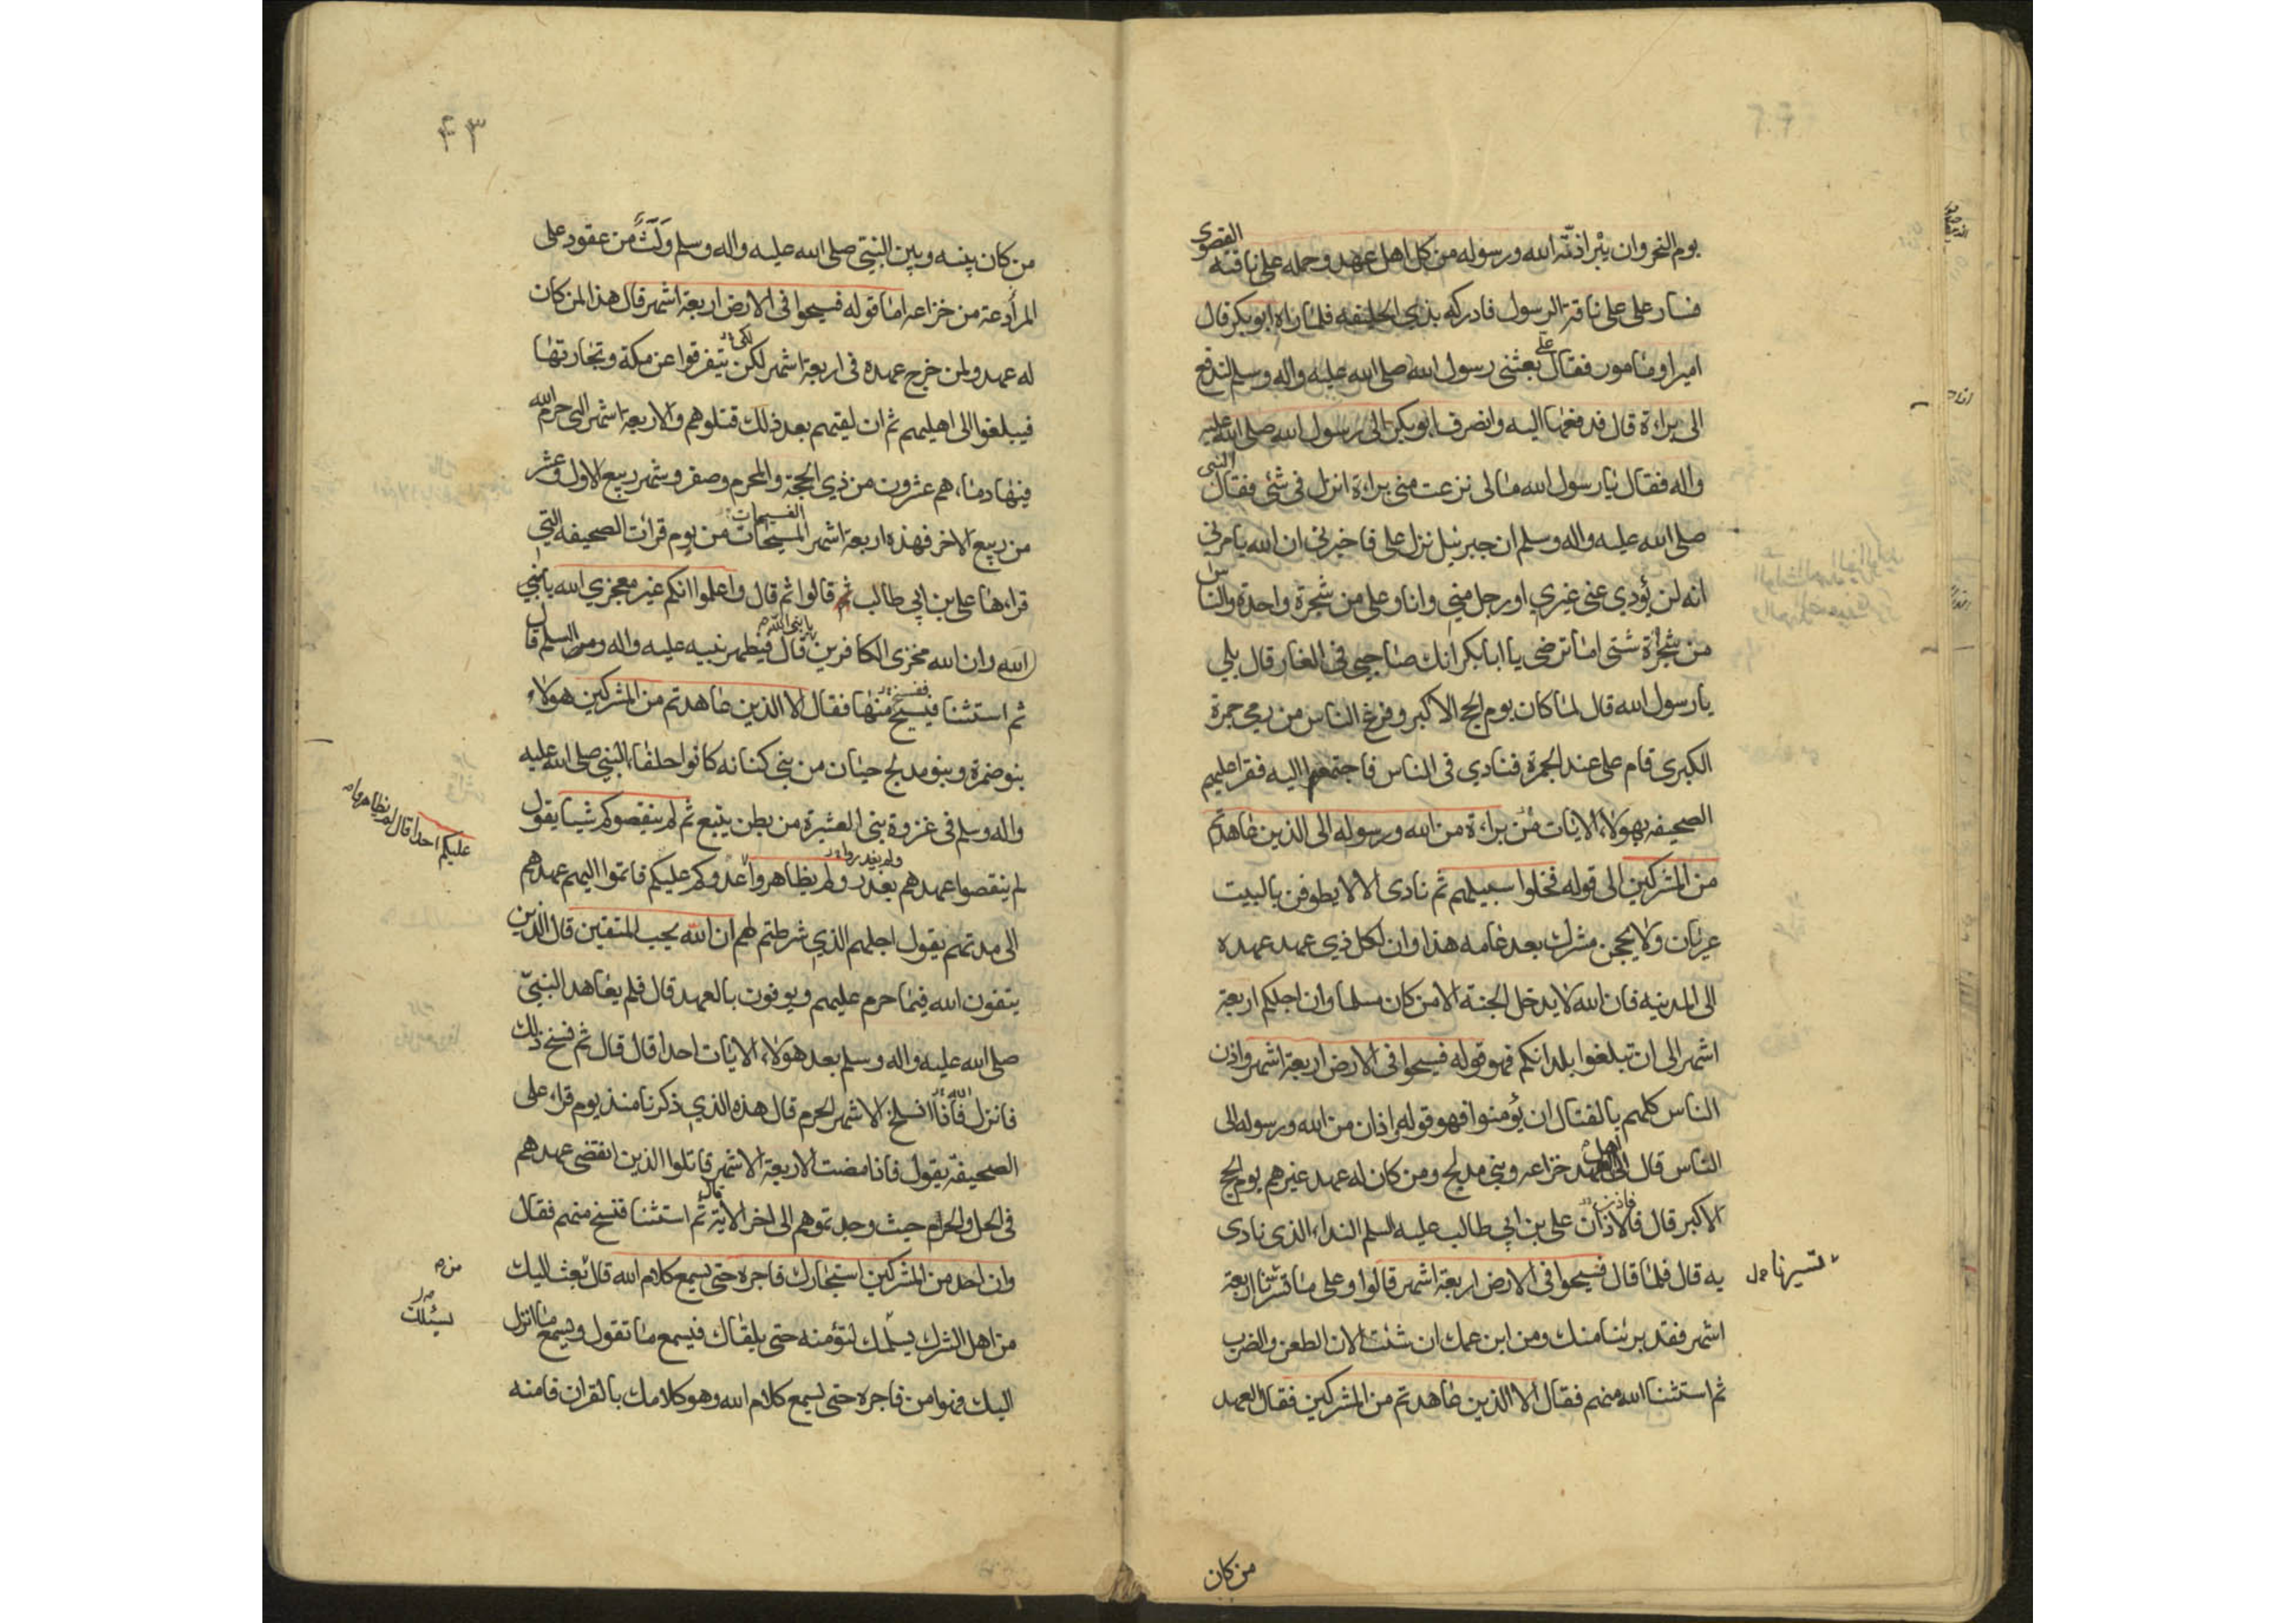 القصوى
يوم النحر وان يبرا ذمّة الله ورسوله من كل اهل عهد وحمله على ناقته
فسار على على ناقة الرسول فادركه بذي الحليفه فلما راه ابو بكر قال
امير او مامور فقال على بعثنى رسول الله صلى الله عليه واله وسلم لتدفع
الى براءة قال فدفعها اليه وانصرف ابو بكر الى رسول الله صلى الله عليه
واله فقال يا رسول الله ما لى نزعت منى براءة انزل فى شئ فقال النبى
صلى الله عليه واله وسلم ان جبرئيل نزل على فاخبرنى ان الله يامرنى
انه لن يؤدي عنى غيري او رجل منى وانا وعلى من شجرة واحدة والناس
من شجرة شتى اما ترضى يا ابا بكر انك صاحبى فى الغار قال بلى
يا رسول الله قال لما كان يوم الحج الاكبر وفرغ الناس من رمي جمرة
الكبرى قام على عند الجمرة فنادي فى الناس فاجتمعوا اليه فقرا عليهم
الصحيفه بهولاء الايات من براءة من الله ورسوله الى الذين عاهدتم
من المشركين الى قوله فخلوا سبيلهم ثم نادى الا لا يطوفن بالبيت
عريان ولا يحجن مشرك بعد عامه هذا وان لكل ذي عهد عهده
الى المدينه فان الله لا يدخل الجنة الا من كان مسلما وان اجلكم اربعة
اشهر الى ان تبلغوا بلدانكم فهو قوله فسيحوا فى الارض اربعة اشهر واذن
الناس كلهم بالقتال ان يؤمنوا فهو قوله واذان من الله ورسوله الى
الناس قال الى اهل العهد خزاعه وبنى مدلج ومن كان له عهد غيرهم يوم الحج
الاكبر قال فالاذان على بن ابى طالب عليه السلم النداء الذى نادى
فاذن
به قال فلما قال فسيحوا فى الارض اربعة اشهر قالوا وعلى ما تسيرنا اربعة
تسيرنا
اشهر فقد برئنا منك ومن ابن عمك ان شئت الان الطعن والضرب
ثم استثنا الله منهم فقال الا الذين عاهدتم من المشركين فقال العهد
من كان
۴۳
من كان بينه وبين النبيّ صلى الله عليه واله وسلم ولث من عقود على
الموادعة من خزاعه اما قوله فسيحوا فى الارض اربعة اشهر قال هذا لمن كان
له عهد ولمن خرج عهده فى اربعة اشهر لكن يتفرقوا عن مكة وتجارتها
لكى
فيبلغوا الى اهليهم ثم ان لقيهم بعد ذلك قتلوهم والاربعة اشهر التى حرم الله
فيها دماءهم عشرون من ذي الحجة والمحرم وصفر وشهر ربيع الاول وعشر
من ربيع الاخر فهذه اربعة اشهر المسيحات من يوم قرات الصحيفه التى
قراءها على بن ابى طالب ثم قالوا ثم قال واعلموا انكم غير معجزي الله يا نبي
الله وان الله مخزى الكافرين قال فيظهر نبيه عليه واله السلم قال
يا نبى الله
ثم استثنا فنسخ منها فقال الا الذين عاهدتم من المشركين هولاء
بنو ضمرة وبنو مدلج حيان من بنى كنانه كانوا حلفاء النبى صلى الله عليه
واله وسلم فى غزوة بنى العشيرة من بطن ينبع ثم لم ينقصوكم شيئا يقول
لم ينقصوا عهدهم بغدر ولم يظاهروا عدوكم عليكم فاتموا اليهم عهدهم
عليكم احدا قال لم يظاهروا
الى مدتهم يقول اجلهم الذي شرطتم لهم ان الله يحب المتقين قال الذين
يتقون الله فيما حرم عليهم ويوفون بالعهد قال فلم يعاهد النبىّ
صلى الله عليه واله وسلم بعد هولاء الايات احدا قال قال ثم نسخ ذلك
فانزل فاذا انسلخ الاشهر الحرم قال هذه الذي ذكرنا منذ يوم قراء على
الصحيفة يقول فاذا مضت الاربعة الاشهر قاتلوا الذين انقضى عهدهم
فى الحل والحرام حيث وجدتموهم الى اخر الاية ثم استثنا فنسخ منهم فقال
قال
وان احد من المشركين استجارك فاجره حتى يسمع كلام الله قال بعث اليك
من
من اهل الشرك يسئلك لتؤمنه حتى يلقاك فيسمع ما تقول ويسمع ما انزل
يسئلك
اليك فهو امن فاجره حتى يسمع كلام الله وهو كلامك بالقران فامنه